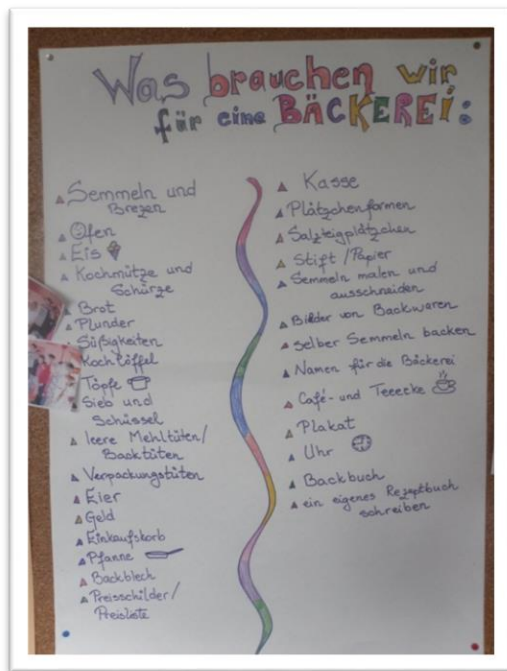 Was brauchen wir
für eine BÄCKEREI:
Semmeln und
Brezen
Ofen
Eis
Kochmütze und
Schürze
Brot
Plunder
Süßigkeiten
Kochlöffel
Töpfe
Sieb und
Schüssel
leere Mehltüten/
Backtüten
Verpackungstüten
Eier
Geld
Einkaufskorb
Pfanne
Backblech
Preisschilder/
Preisliste
Kasse
Plätzchenformen
Salzteigplätzchen
Stift/Papier
Semmeln malen und
ausschneiden
Bilder von Backwaren
selber Semmeln backen
Namen für die Bäckerei
Café- und Teeecke
Plakat
Uhr
Backbuch
ein eigenes Rezeptbuch
schreiben